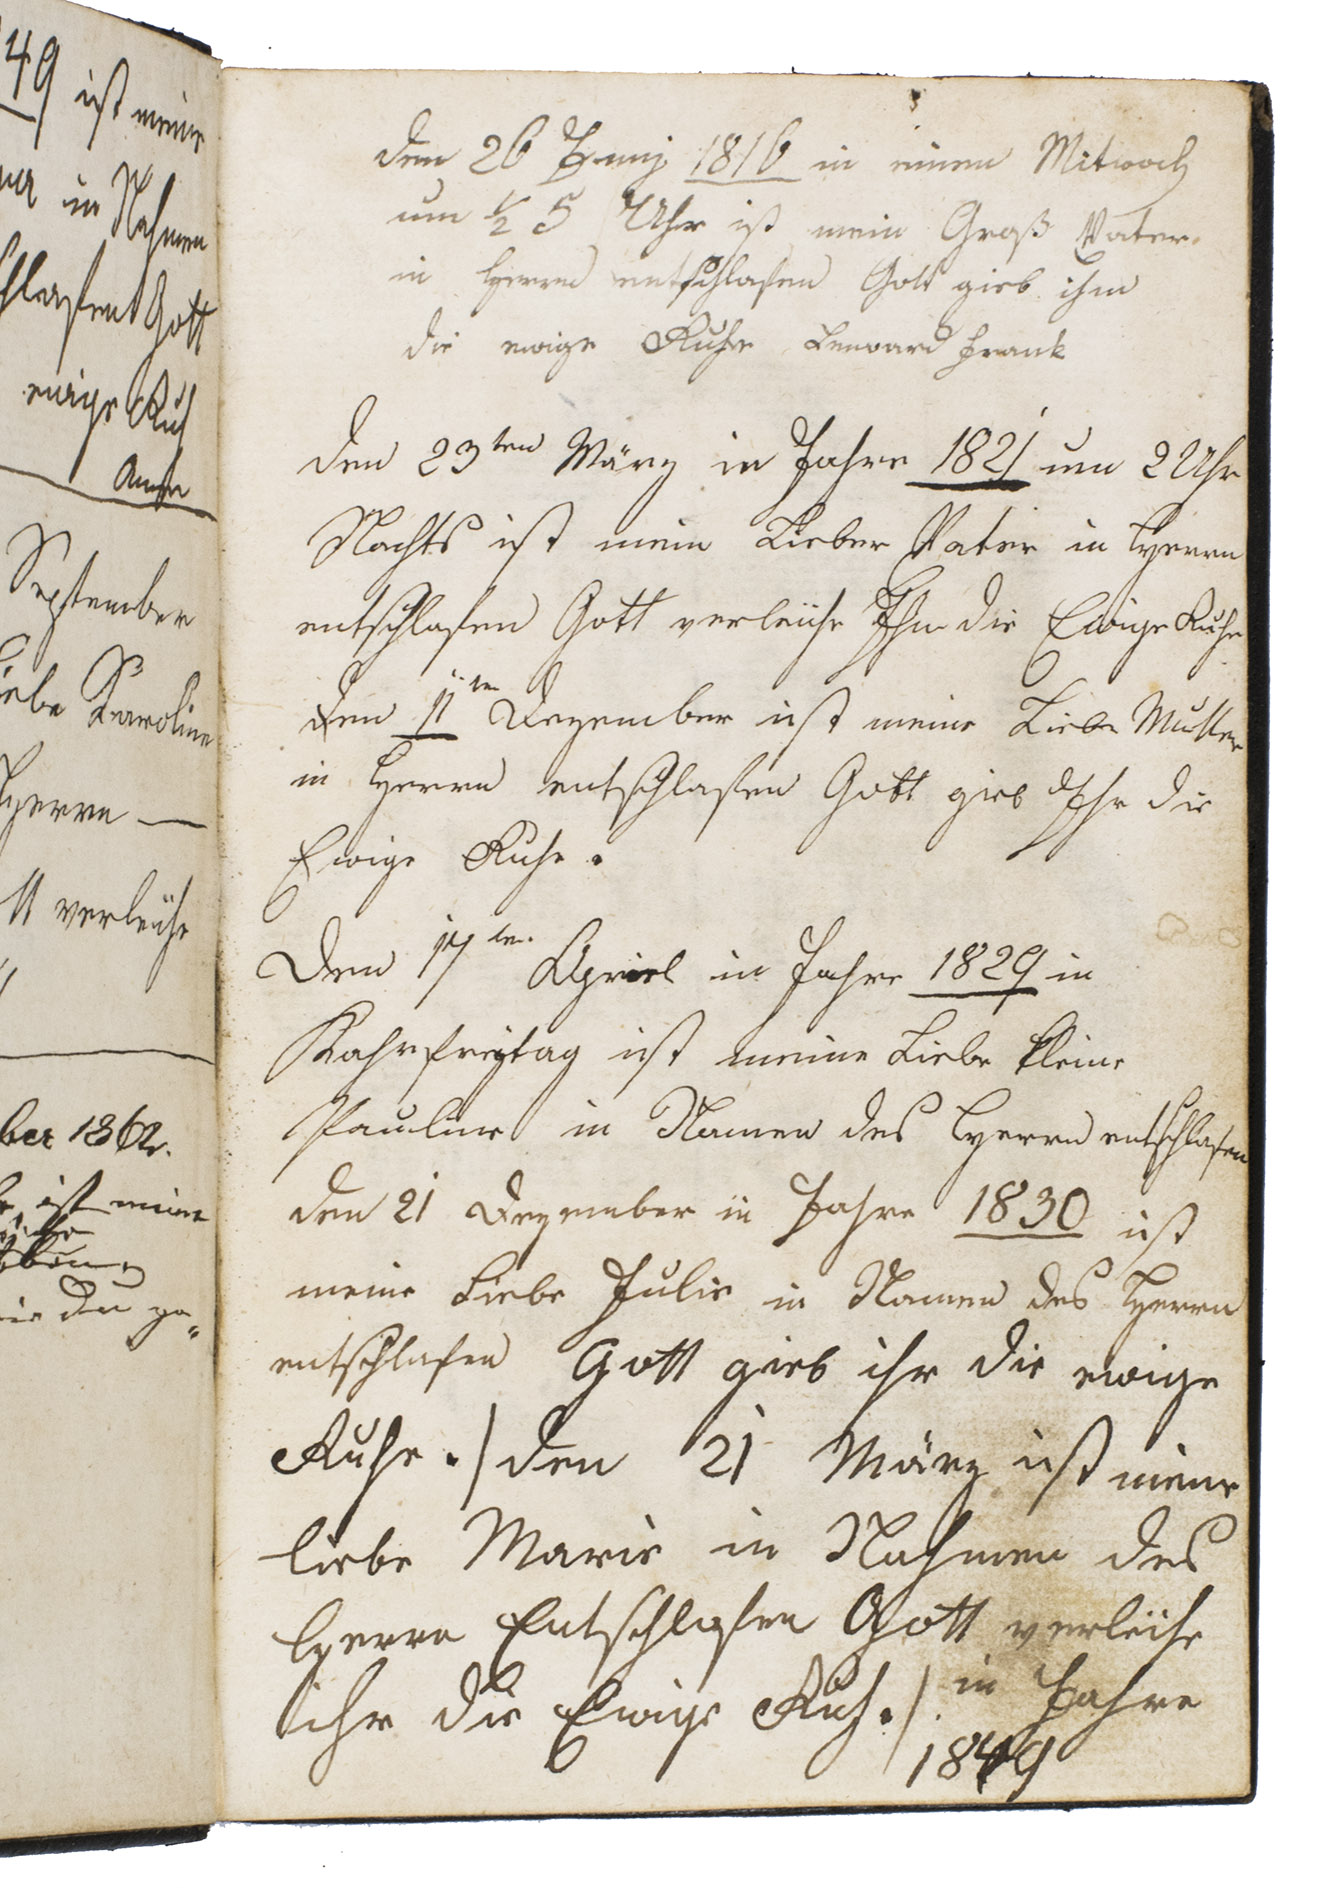 49 ist meine
in Nahmen
schlafen Gott
ewige Ruh
Amen
September
liebe Karoline
Herrn —
verleihe
ber 1862.
ist meine
den 26 Juny 1816 in einem Mitwoch
um ½ 5 Uhr ist mein Groß Vater
in Herrn entschlafen Gott gieb ihm
die ewige Ruhe Lenward Frank
den 23ten März in Jahre 1821 um 2 Uhr
Nachts ist mein Lieber Vater in Herrn
entschlafen Gott verleihe Ihm die Ewige Ruhe
den 11ten Dezember ist meine Liebe Mutter
in Herrn entschlafen Gott gieb Ihr die
Ewige Ruhe.
Den 17ten Apriel in Jahre 1829 in
Kahrfreytag ist meine Liebe kleine
Pauline in Namen des Herrn entschlafen
den 21 Dezember in Jahre 1830 ist
meine Liebe Julie in Namen des Herrn
entschlafen Gott gieb ihr die ewige
Ruhe ./ den 21 März ist meine
liebe Marie in Nahmen des
Herrn Entschlafen Gott verleihe
ihr die Ewige Ruh ./ in Jahre
1849